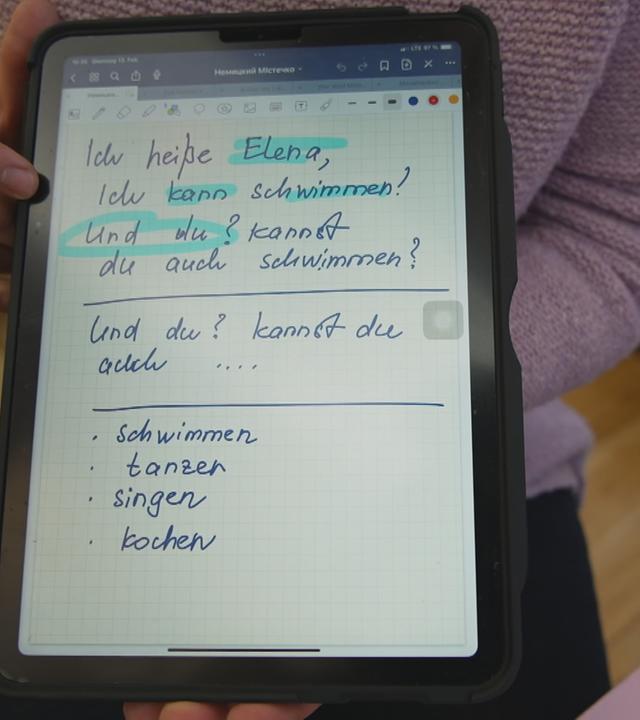 LTE 97 %
Немецкий Містечко
Ich heiße Elena,
Ich kann schwimmen!
Und du? kannst
du auch schwimmen?
Und du? kannst du
auch ....
· schwimmen
· tanzen
· singen
· kochen